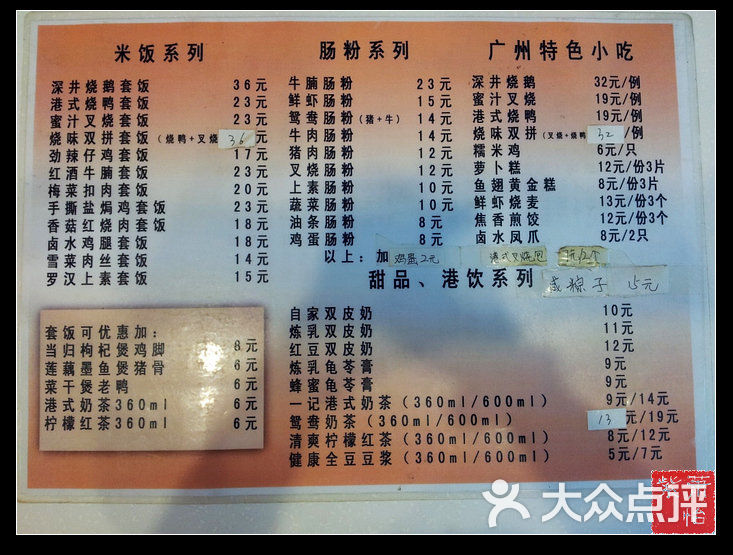 米饭系列
深井烧鹅套饭 36元
港式烧鸭套饭 23元
蜜汁叉烧套饭 23元
烧味双拼套饭(烧鸭+叉烧 36元
劲辣仔鸡套饭 17元
红酒牛腩套饭 23元
梅菜扣肉套饭 20元
手撕盐焗鸡套饭 23元
香菇红烧肉套饭 18元
卤水鸡腿套饭 18元
雪菜肉丝套饭 14元
罗汉上素套饭 15元
套饭可优惠加:
当归枸杞煲鸡脚 8元
莲藕墨鱼煲猪骨 6元
菜干煲老鸭 6元
港式奶茶360ml 6元
柠檬红茶360ml 6元
肠粉系列
牛腩肠粉 23元
鲜虾肠粉 15元
鸳鸯肠粉(猪+牛) 14元
牛肉肠粉 14元
猪肉肠粉 12元
叉烧肠粉 12元
上素肠粉 10元
蔬菜肠粉 10元
油条肠粉 8元
鸡蛋肠粉 8元
以上:加 鸡蛋2元
广州特色小吃
深井烧鹅 32元/例
蜜汁叉烧 19元/例
港式烧鸭 19元/例
烧味双拼(叉烧+烧鸭 32/例
糯米鸡 6元/只
萝卜糕 12元/份3片
鱼翅黄金糕 8元/份3片
鲜虾烧麦 13元/份3个
焦香煎饺 12元/份3个
卤水凤爪 8元/2只
港式叉烧包
咸粽子 15元
甜品、港饮系列
自家双皮奶 10元
炼乳双皮奶 11元
红豆双皮奶 12元
炼乳龟苓膏 9元
蜂蜜龟苓膏 9元
一记港式奶茶(360ml/600ml) 9元/14元
鸳鸯奶茶(360ml/600ml) 13元/19元
清爽柠檬红茶(360ml/600ml) 8元/12元
健康全豆豆浆(360ml/600ml) 5元/7元
大众点评